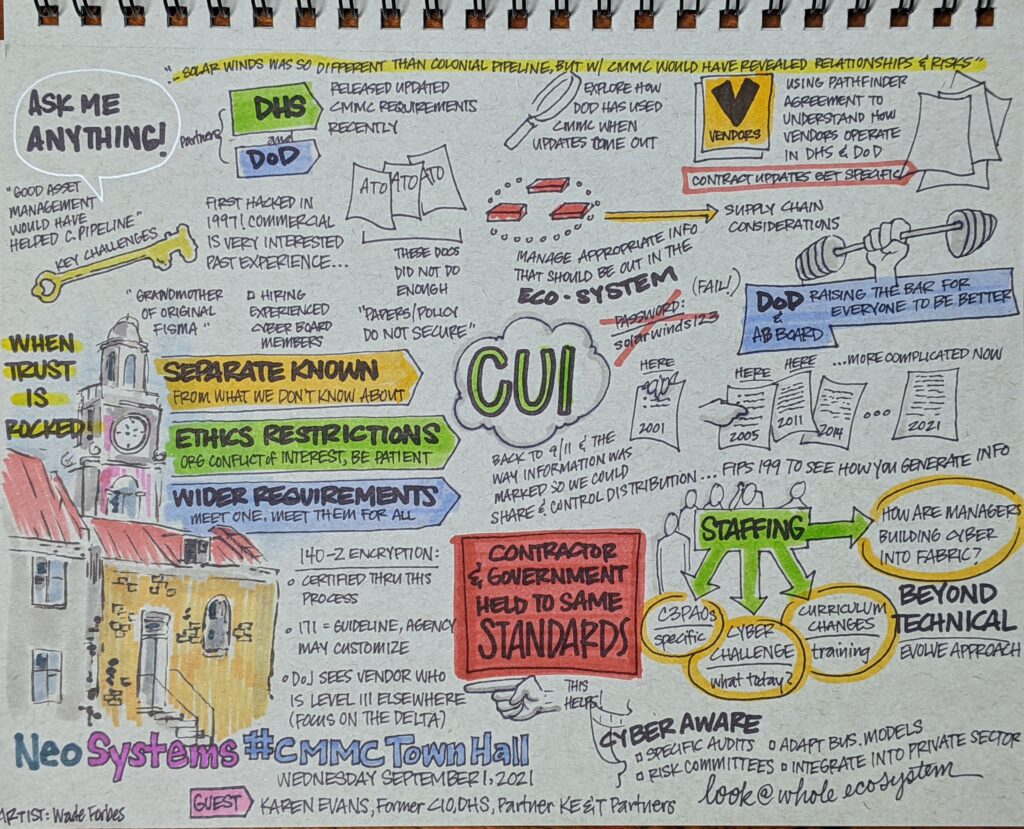 "...SOLAR WINDS WAS SO DIFFERENT THAN COLONIAL PIPELINE, BUT W/ CMMC WOULD HAVE REVEALED RELATIONSHIPS & RISKS"
ASK ME
ANYTHING!
Partners
DHS
and
DoD
RELEASED UPDATED
CMMC REQUIREMENTS
RECENTLY
EXPLORE HOW
DOD HAS USED
CMMC WHEN
UPDATES COME OUT
V
VENDORS
USING PATHFINDER
AGREEMENT TO
UNDERSTAND HOW
VENDORS OPERATE
IN DHS & DoD
CONTRACT UPDATES GET SPECIFIC
"GOOD ASSET
MANAGEMENT
WOULD HAVE
HELDED C. PIPELINE"
KEY CHALLENGES
FIRST HACKED IN
1997! COMMERCIAL
IS VERY INTERESTED
PAST EXPERIENCE...
ATO ATO ATO
THESE DOCS
DID NOT DO
ENOUGH
"PAPERS/POLICY
DO NOT SECURE"
MANAGE APPROPRIATE INFO
THAT SHOULD BE OUT IN THE
ECO-SYSTEM
SUPPLY CHAIN
CONSIDERATIONS
(FAIL!)
PASSWORD:
solarwinds123
DoD
&
AB BOARD
RAISING THE BAR FOR
EVERYONE TO BE BETTER
"GRANDMOTHER
OF ORIGINAL
FISMA"
HIRING
EXPERIENCED
CYBER BOARD
MEMBERS
WHEN
TRUST
IS
ROCKED!
SEPARATE KNOWN
FROM WHAT WE DON'T KNOW ABOUT
ETHICS RESTRICTIONS
ORG CONFLICT OF INTEREST, BE PATIENT
WIDER REQUIREMENTS
MEET ONE, MEET THEM FOR ALL
CUI
HERE
2001
HERE
2005
HERE
2011
2014
...MORE COMPLICATED NOW
...
2021
BACK TO 9/11 & THE
WAY INFORMATION WAS
MARKED SO WE COULD
SHARE & CONTROL DISTRIBUTION... FIPS 199 TO SEE HOW YOU GENERATE INFO
140-2 ENCRYPTION:
CERTIFIED THRU THIS
PROCESS
171 = GUIDELINE, AGENCY
MAY CUSTOMIZE
DoJ SEES VENDOR WHO
IS LEVEL III ELSEWHERE
(FOCUS ON THE DELTA)
CONTRACTOR
& GOVERNMENT
HELD TO SAME
STANDARDS
THIS
HELPS
STAFFING
HOW ARE MANAGERS
BUILDING CYBER
INTO FABRIC?
C3PAOs
specific
CYBER
CHALLENGE
what today?
CURRICULUM
CHANGES
training
BEYOND
TECHNICAL
EVOLVE APPROACH
CYBER AWARE
SPECIFIC AUDITS
ADAPT BUS. MODELS
RISK COMMITTEES
INTEGRATE INTO PRIVATE SECTOR
look @ whole ecosystem
Neo Systems #CMMC Town Hall
WEDNESDAY SEPTEMBER 1, 2021
GUEST
KAREN EVANS, Former CIO, DHS, Partner KE&T Partners
ARTIST: Wade Forbes